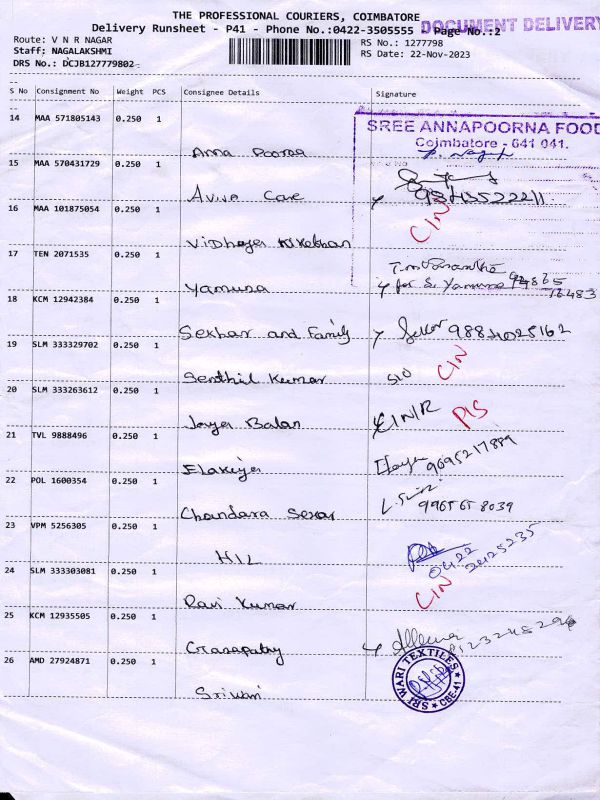 THE PROFESSIONAL COURIERS, COIMBATORE
Delivery Runsheet - P41 - Phone No.:0422-3505555 - Page No.:2
DOCUMENT DELIVERY
Route: V N R NAGAR
Staff: NAGALAKSHMI
DRS No.: DCJB127779802
RS No.: 1277798
RS Date: 22-Nov-2023
S No Consignment No Weight PCS Consignee Details Signature
14 MAA 571805143 0.250 1 Anna Poorna
SREE ANNAPOORNA FOOD
Coimbatore - 641 041.
15 MAA 570431729 0.250 1 Aviva Care 9843522211
16 MAA 101875054 0.250 1 Vidhayer CIN
17 TEN 2071535 0.250 1 Yamuna for S. Yamuna
18 KCM 12942384 0.250 1 Sekhar and Family 9884025162
19 SLM 333329702 0.250 1 Senthil Kumar S/O CIN
20 SLM 333263612 0.250 1 Jaya Balan CIN/R PIS
21 TVL 9888496 0.250 1 Elakiya 9695217889
22 POL 1600354 0.250 1 Chandara Sekar 9965658039
23 VPM 5256305 0.250 1 HIL 0422 2425235
24 SLM 333303081 0.250 1 Ravi Kumar CIN
25 KCM 12935505 0.250 1
26 AMD 27924871 0.250 1 Sriwari
SRI WARI TEXTILES
CBE-41